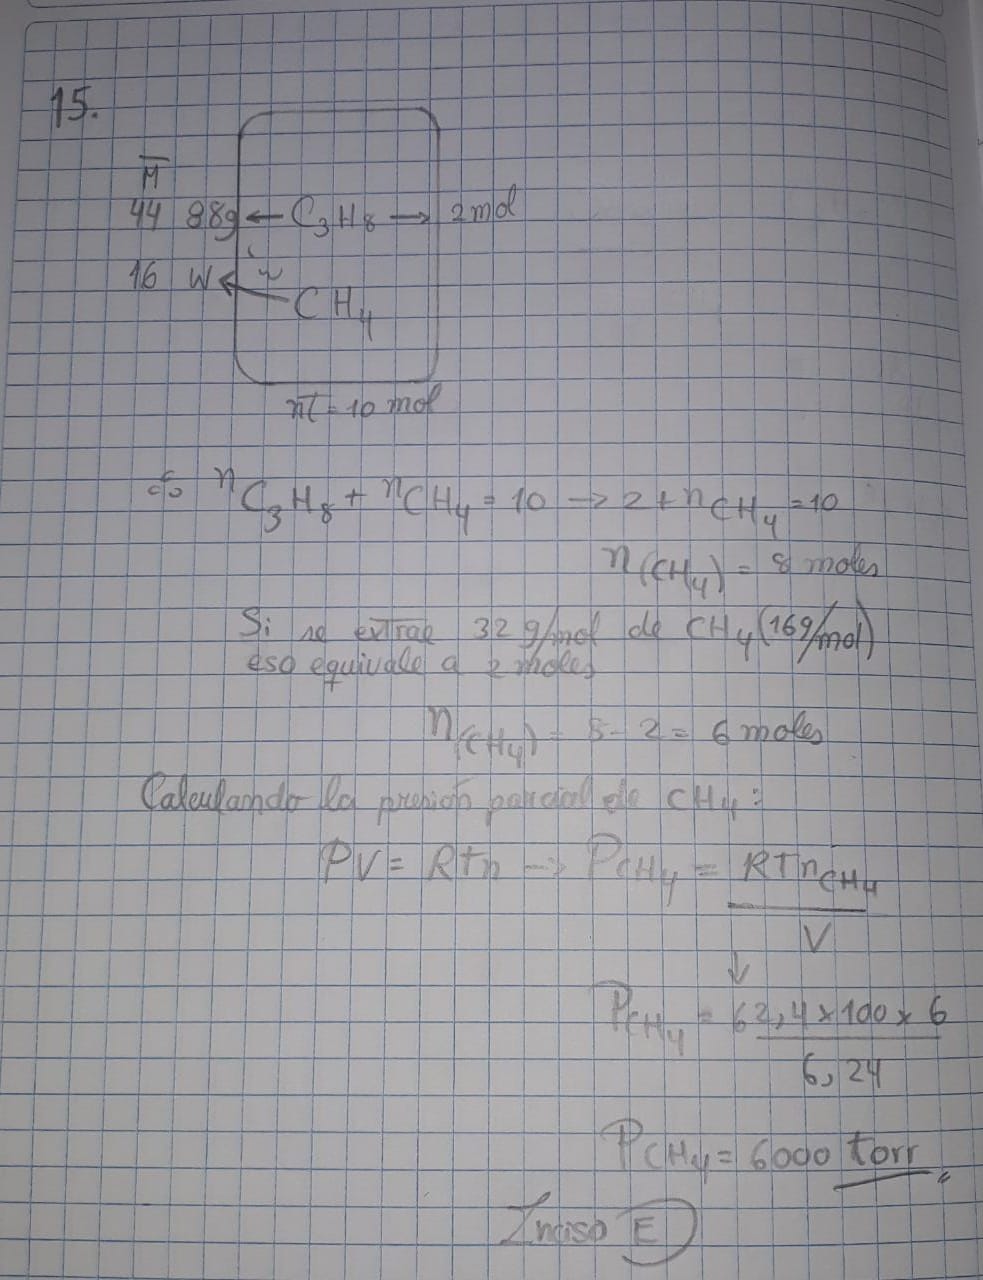 15.
M̄
44 88g ← C₃H₈ → 2 mol
16 W ← CH₄
nT = 10 mol
∴ nC₃H₈ + nCH₄ = 10 → 2 + nCH₄ = 10
n(CH₄) = 8 moles
Si se extrae 32 g/mol de CH₄ (16g/mol)
eso equivale a 2 moles
n(CH₄) = 8 - 2 = 6 moles
Calculando la presión parcial de CH₄:
PV = RTn → PCH₄ = RTnCH₄
V
↓
PCH₄ = 62,4 x 100 x 6
6,24
PCH₄ = 6000 torr
Inciso E